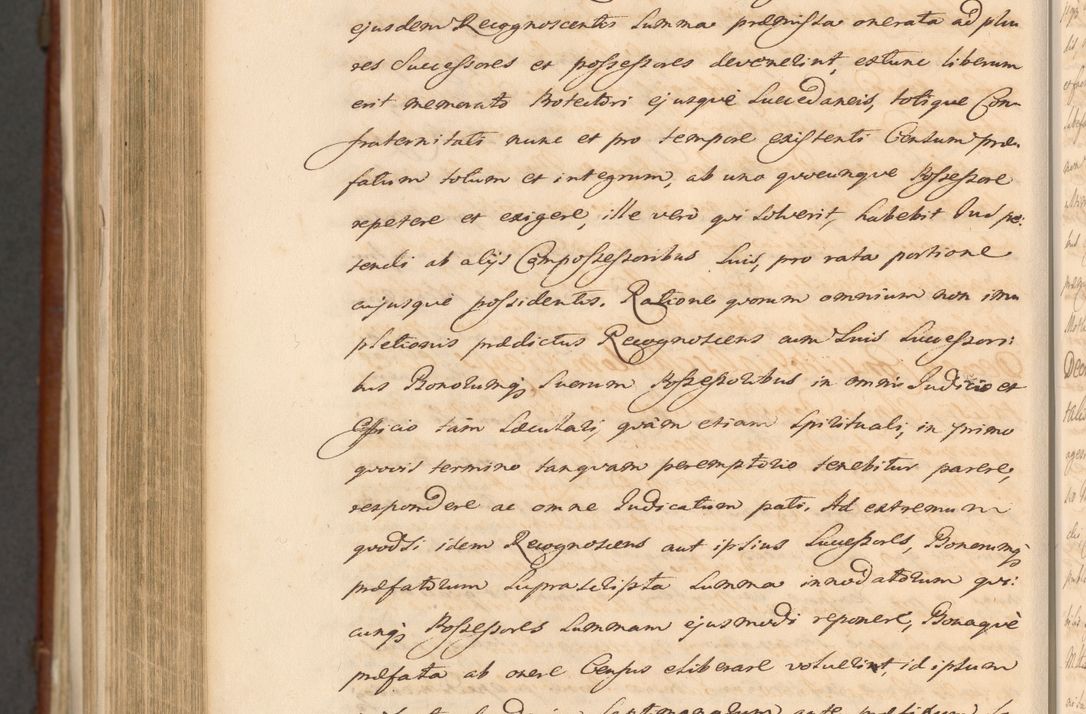 ejusdem Recognoscentis Summa præmissa onerata ad plu
res Successores et possessores devenerint, extunc liberum
erit memorato Protectori ejusque Succedaneis, totique Con-
fraternitati nunc et pro tempore existenti Censum præ
fatum totum et integrum, ab uno quocunque Possessore
repetere et exigere, ille vero qui solverit, habebit Jus pe:
tendi ab alijs Compossessoribus suis, pro rata portione
cujusque possidentis. Ratione quorum omnium non im
pletionis prædictus Recognoscens cum Suis Successori:
bus Bonorumq; Suorum Possessoribus in omni Judicio et
Officio tàm Sæculari, quàm etiam Spirituali, in primo
quovis termino tanquam peremptorio tenebitur parere,
respondere ac omne Judicatum pati. Ad extremum
quodsi idem Recognoscens aut ipsius Successores, Bonorumq;
præfatorum suprascripta Summa innodatorum qui:
cunq; Possessores Summam ejusmodi reponere, Bonaquè
præfata ab onere Census eliberare voluerint, id ipsum